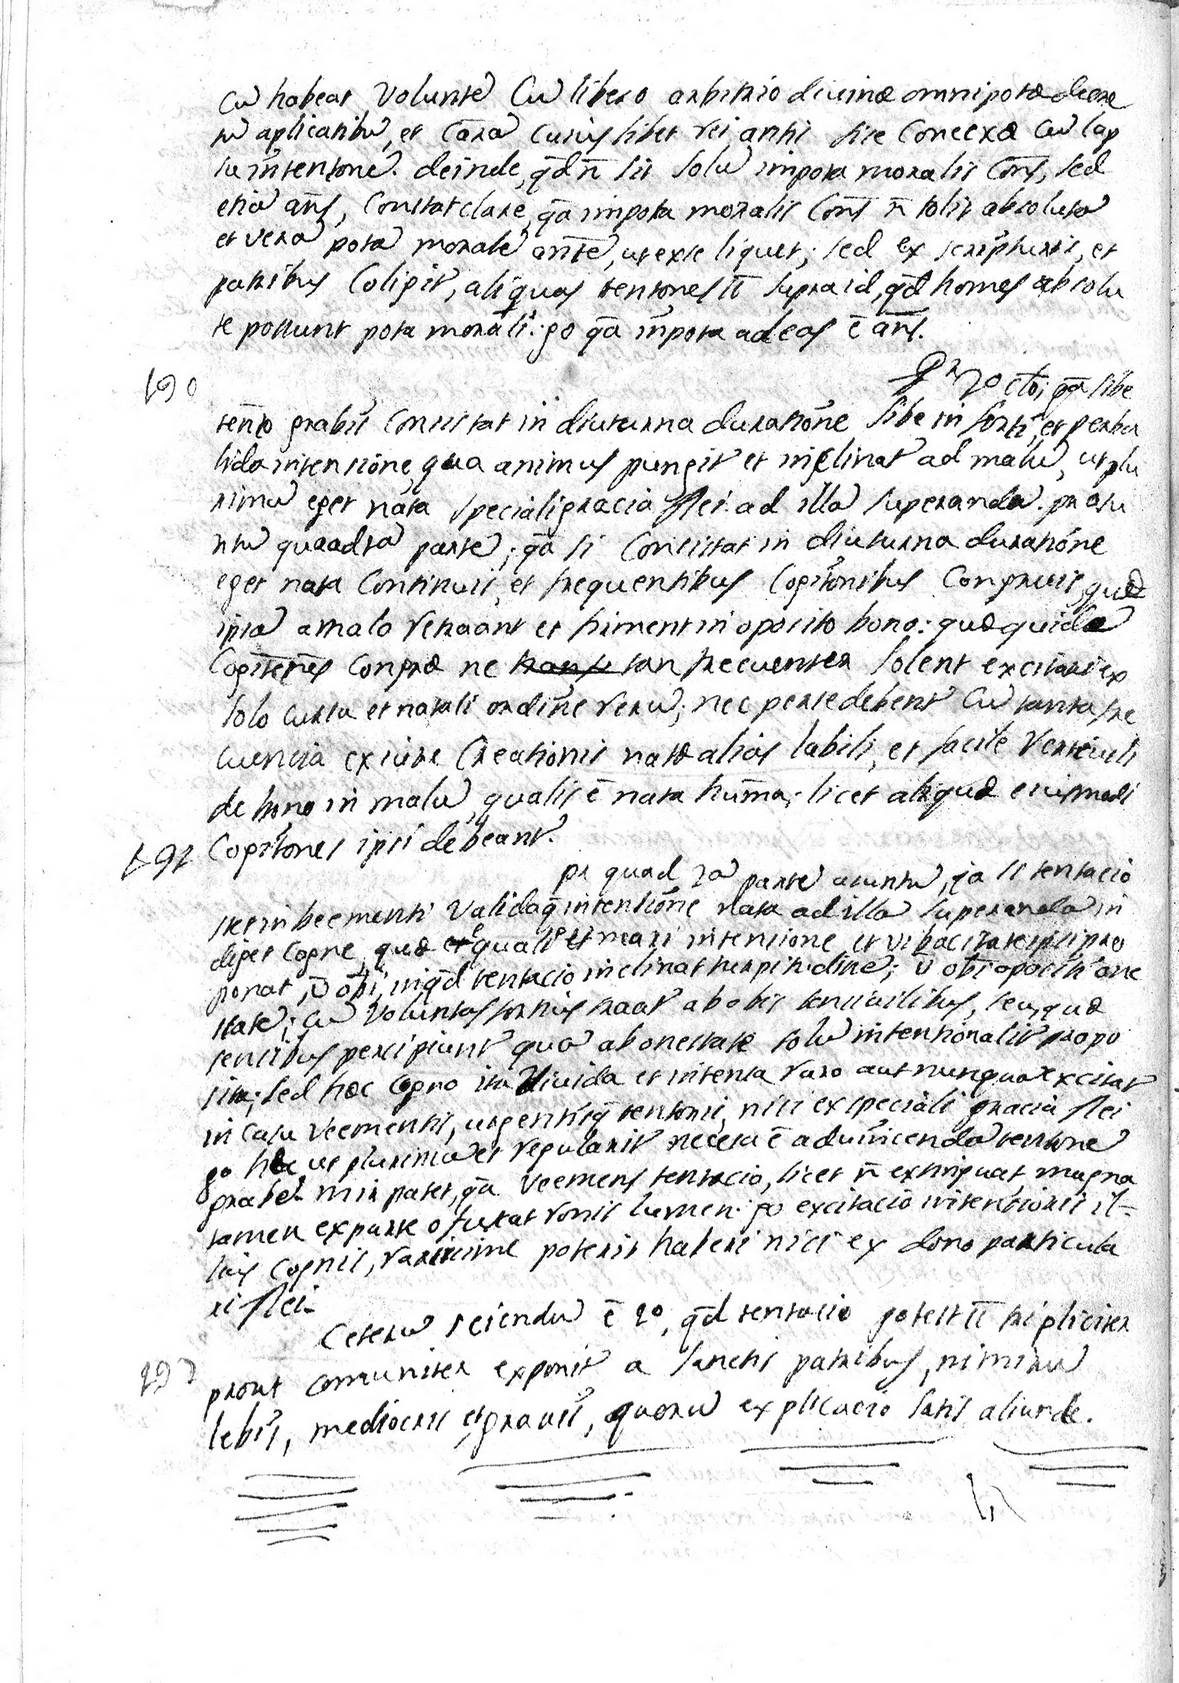 cũ habeat voluntẽ cũ libero arbitrio divinæ omnipotæ decre
tũ aplicatibũ, et cãrã cuiuslibet rei antĩ sive conecxã cũ lap
su intentione. deinde, qd ñ sit solũ impotã moralis cons̃, sed
etiã ans̃, constat clare, qã impotã moralis cons̃ ñ tolit absolutã
et verã potã moralẽ antẽ, ut ex se liquet; sed ex scripturis, et
patribus coligit, aliquas tentones supra id, qd homes absolu
te possunt potã morali. go qã impotã ad eas ẽ ans̃.
190
Pr 2º cto; qã sibe
tento grabis consistat in diuturna duratione sibe in forti, et perba
lida intensione, qua animus pungit et inclinat ad malũ, ut plu
rimũ eget nata speciali gracia Dei ad illã superandã. pr asũ
ntũ quoad 1ã partẽ; qã si consistat in diuturna duratione
eget nata continuis, et frequentibus cogitonibus congruis, quæ
ipsã a malo retraant et firment in oposito bono: quæ quidẽ
cogitones congruæ ne tan frecuenter solent excitari ex
solo cursu et natali ordine rerũ; nec per se debent cũ tanta fre
cuencia ex iure creationis natæ alias labili, et facile vertibili
de bono in malũ, qualis ẽ nata humã; licet aliquæ eiusmodi
191 cogitones ipsi debeant.
pr quoad 2ã partẽ asuntũ, qã si tentacio
stet in beementi validaq̃ intensione nata ad illã superandã in
diget cogne, quæ quali et mari intensione et vibacitate ipsi pro
ponat, ũ obi, in qd tentacio inclinat turpitudinẽ; ũ obi opositi one
statẽ; cũ voluntas fortius traat ab obis sensibilibus, seu quæ
sensibus percipiunt quã ab onestate solũ intentionalit propo
sita; sed hæc cogno ita vivida et intensa raro aut nunquã excitat
in casu veementis, urgentisq̃ tentonis, nisi ex speciali gracia Dei
go hæc ut plurimũ et regularit necesã ẽ ad vincendã tentone
grabẽ. min patet, qã veemens tentacio, licet ñ extinguat, magna
tamen ex parte ofuscat ronis lumen. go excitacio intensioris il-
lius cognis, rarisime poterit haberi nisi ex dono particula
ri Dei.
192
Ceterũ sciendũ ẽ 2º, qd tentacio potest tripliciter
prout comuniter exponit a sanctis patribus, nimirũ
lebis, mediocris et gravis, quorũ explicacio satis aliunde.